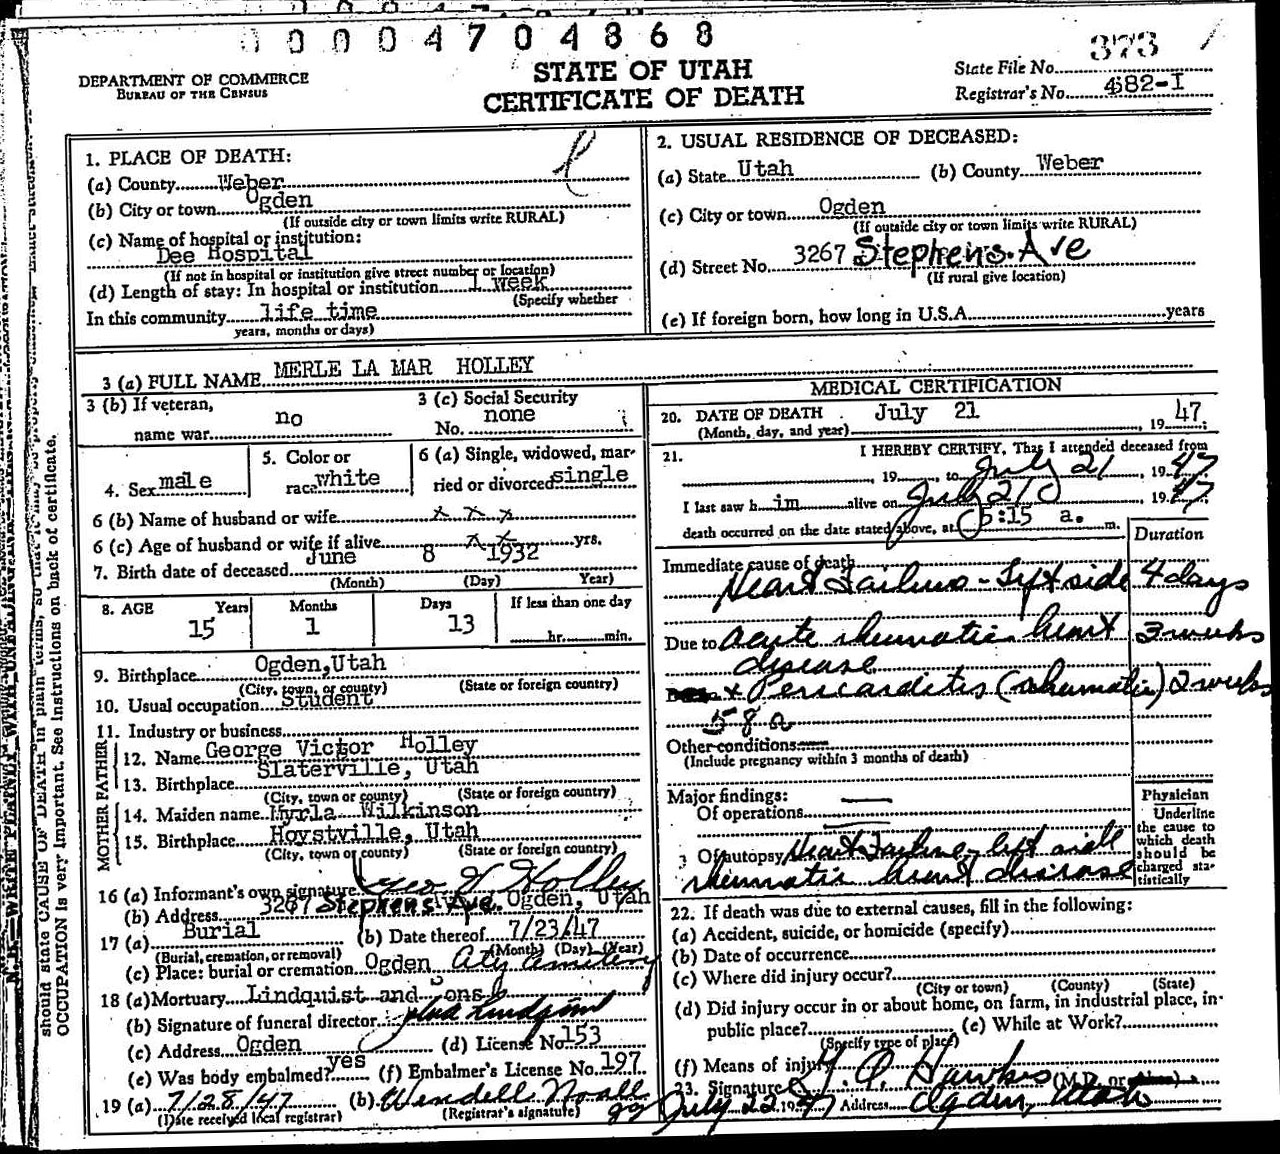 0 0 0 0 4 7 0 4 8 6 8
373
DEPARTMENT OF COMMERCE
BUREAU OF THE CENSUS
STATE OF UTAH
CERTIFICATE OF DEATH
State File No.
Registrar's No. 482-I
1. PLACE OF DEATH:
(a) County Weber
(b) City or town Ogden
(If outside city or town limits write RURAL)
(c) Name of hospital or institution:
Dee Hospital
(If not in hospital or institution give street number or location)
(d) Length of stay: In hospital or institution 1 week
(Specify whether
In this community life time
years, months or days)
2. USUAL RESIDENCE OF DECEASED:
(a) State Utah (b) County Weber
(c) City or town Ogden
(If outside city or town limits write RURAL)
(d) Street No. 3267 Stephens Ave
(If rural give location)
(e) If foreign born, how long in U.S.A. years
3 (a) FULL NAME MERLE LA MAR HOLLEY
3 (b) If veteran, name war no
3 (c) Social Security No. none
4. Sex male
5. Color or race white
6 (a) Single, widowed, married or divorced single
6 (b) Name of husband or wife x x x
6 (c) Age of husband or wife if alive x x yrs.
7. Birth date of deceased June 8 1932
(Month) (Day) Year)
8. AGE Years Months Days If less than one day
15 1 13 hr. min.
9. Birthplace Ogden, Utah
(City, town, or county) (State or foreign country)
10. Usual occupation Student
11. Industry or business
FATHER
12. Name George Victor Holley
13. Birthplace Slaterville, Utah
(City, town or county) (State or foreign country)
MOTHER
14. Maiden name Myrla Wilkinson
15. Birthplace Hoystville, Utah
(City, town or county) (State or foreign country)
16 (a) Informant's own signature Geo V Holley
(b) Address 3267 Stephens Ave. Ogden, Utah
17 (a) Burial (b) Date thereof 7/23/47
(Burial, cremation, or removal) (Month) (Day) (Year)
(c) Place: burial or cremation Ogden City Cemetery
18 (a) Mortuary Lindquist and Sons
(b) Signature of funeral director
(c) Address Ogden (d) License No. 153
(e) Was body embalmed? yes (f) Embalmer's License No. 197
19 (a) 7/28/47 (b) Wendell Noall
(Date received local registrar) (Registrar's signature)
MEDICAL CERTIFICATION
20. DATE OF DEATH July 21 , 19 47
(Month, day, and year)
21. I HEREBY CERTIFY, That I attended deceased from
, 19 to July 21 , 19 47
I last saw h im alive on July 21 , 19 47
death occurred on the date stated above, at 5:15 a. m.
Duration
Immediate cause of death
Heart Failure - Left side 4 days
Due to acute rheumatic heart 3 weeks
disease
+ Pericarditis (rheumatic) 2 weeks
58a
Other conditions
(Include pregnancy within 3 months of death)
Major findings:
Of operations
Of autopsy Heart Failure - left side
rheumatic heart disease
Physician
Underline
the cause to
which death
should be
charged sta-
tistically
22. If death was due to external causes, fill in the following:
(a) Accident, suicide, or homicide (specify)
(b) Date of occurrence
(c) Where did injury occur?
(City or town) (County) (State)
(d) Did injury occur in or about home, on farm, in industrial place, in-
public place? (e) While at Work?
(Specify type of place)
(f) Means of injury
23. Signature (M.D. or
July 22 1947 Address Ogden, Utah
N. B.—WRITE PLAINLY WITH UNFADING INK
should state CAUSE OF DEATH in plain terms, so that it may be properly
OCCUPATION is very Important. See Instructions on back of certificate.